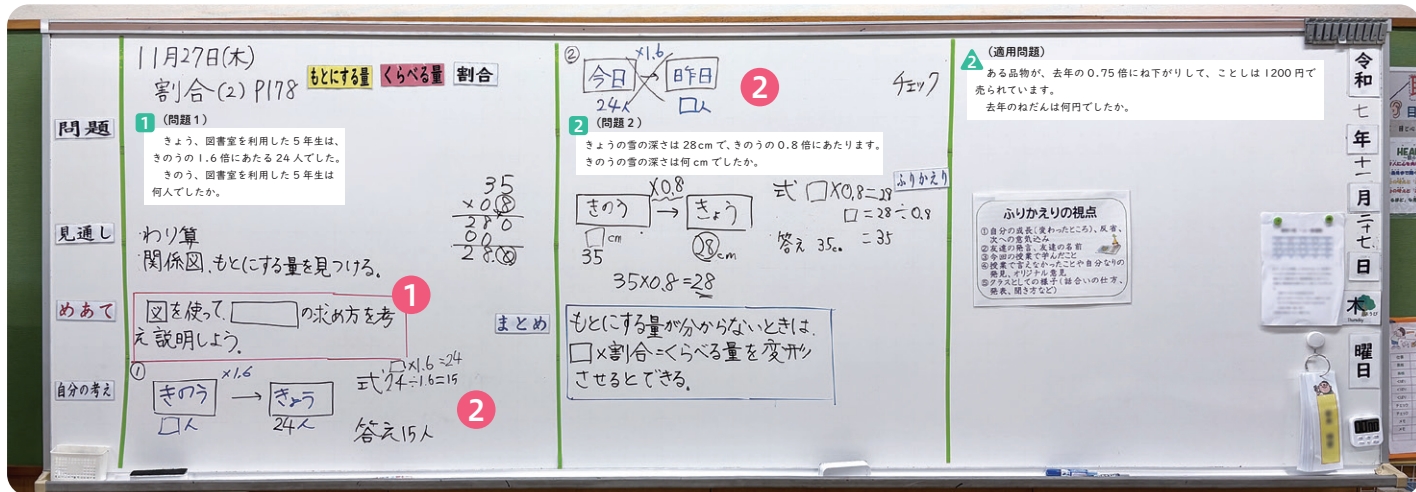 問題
見通し
めあて
自分の考え
11月27日(木)
割合(2) P178
もとにする量
くらべる量
割合
1 (問題1)
きょう、図書室を利用した5年生は、
きのうの1.6倍にあたる24人でした。
きのう、図書室を利用した5年生は
何人でしたか。
わり算
関係図、もとにする量を見つける。
35
×0.8
280
00
28.0
1
図を使って、□の求め方を考
え説明しよう。
①
×1.6
きのう → きょう
□人 24人
□×1.6=24
式 24÷1.6=15
答え15人
2
まとめ
②
×1.6
今日 → 昨日
24人 □人
2
2 (問題2)
きょうの雪の深さは28cmで、きのうの0.8倍にあたります。
きのうの雪の深さは何cmでしたか。
×0.8
きのう → きょう
□cm 28cm
35
35×0.8=28
式 □×0.8=28
□=28÷0.8
=35
答え 35cm
もとにする量が分からないときは、
□×割合=くらべる量を変形
させるとできる。
チェック
ふりかえり
2 (適用問題)
ある品物が、去年の0.75倍にね下がりして、ことしは1200円で
売られています。
去年のねだんは何円でしたか。
ふりかえりの視点
①自分の成長(変わったところ)、反省、
次への意気込み
②友達の発言、友達の名前
③今回の授業で学んだこと
④授業で言えなかったことや自分なりの
発見、オリジナル意見
⑤クラスとしての様子(話合いの仕方、
発表、聞き方など)
令和
七
年
十一
月
二十七
日
木
Thursday
曜日